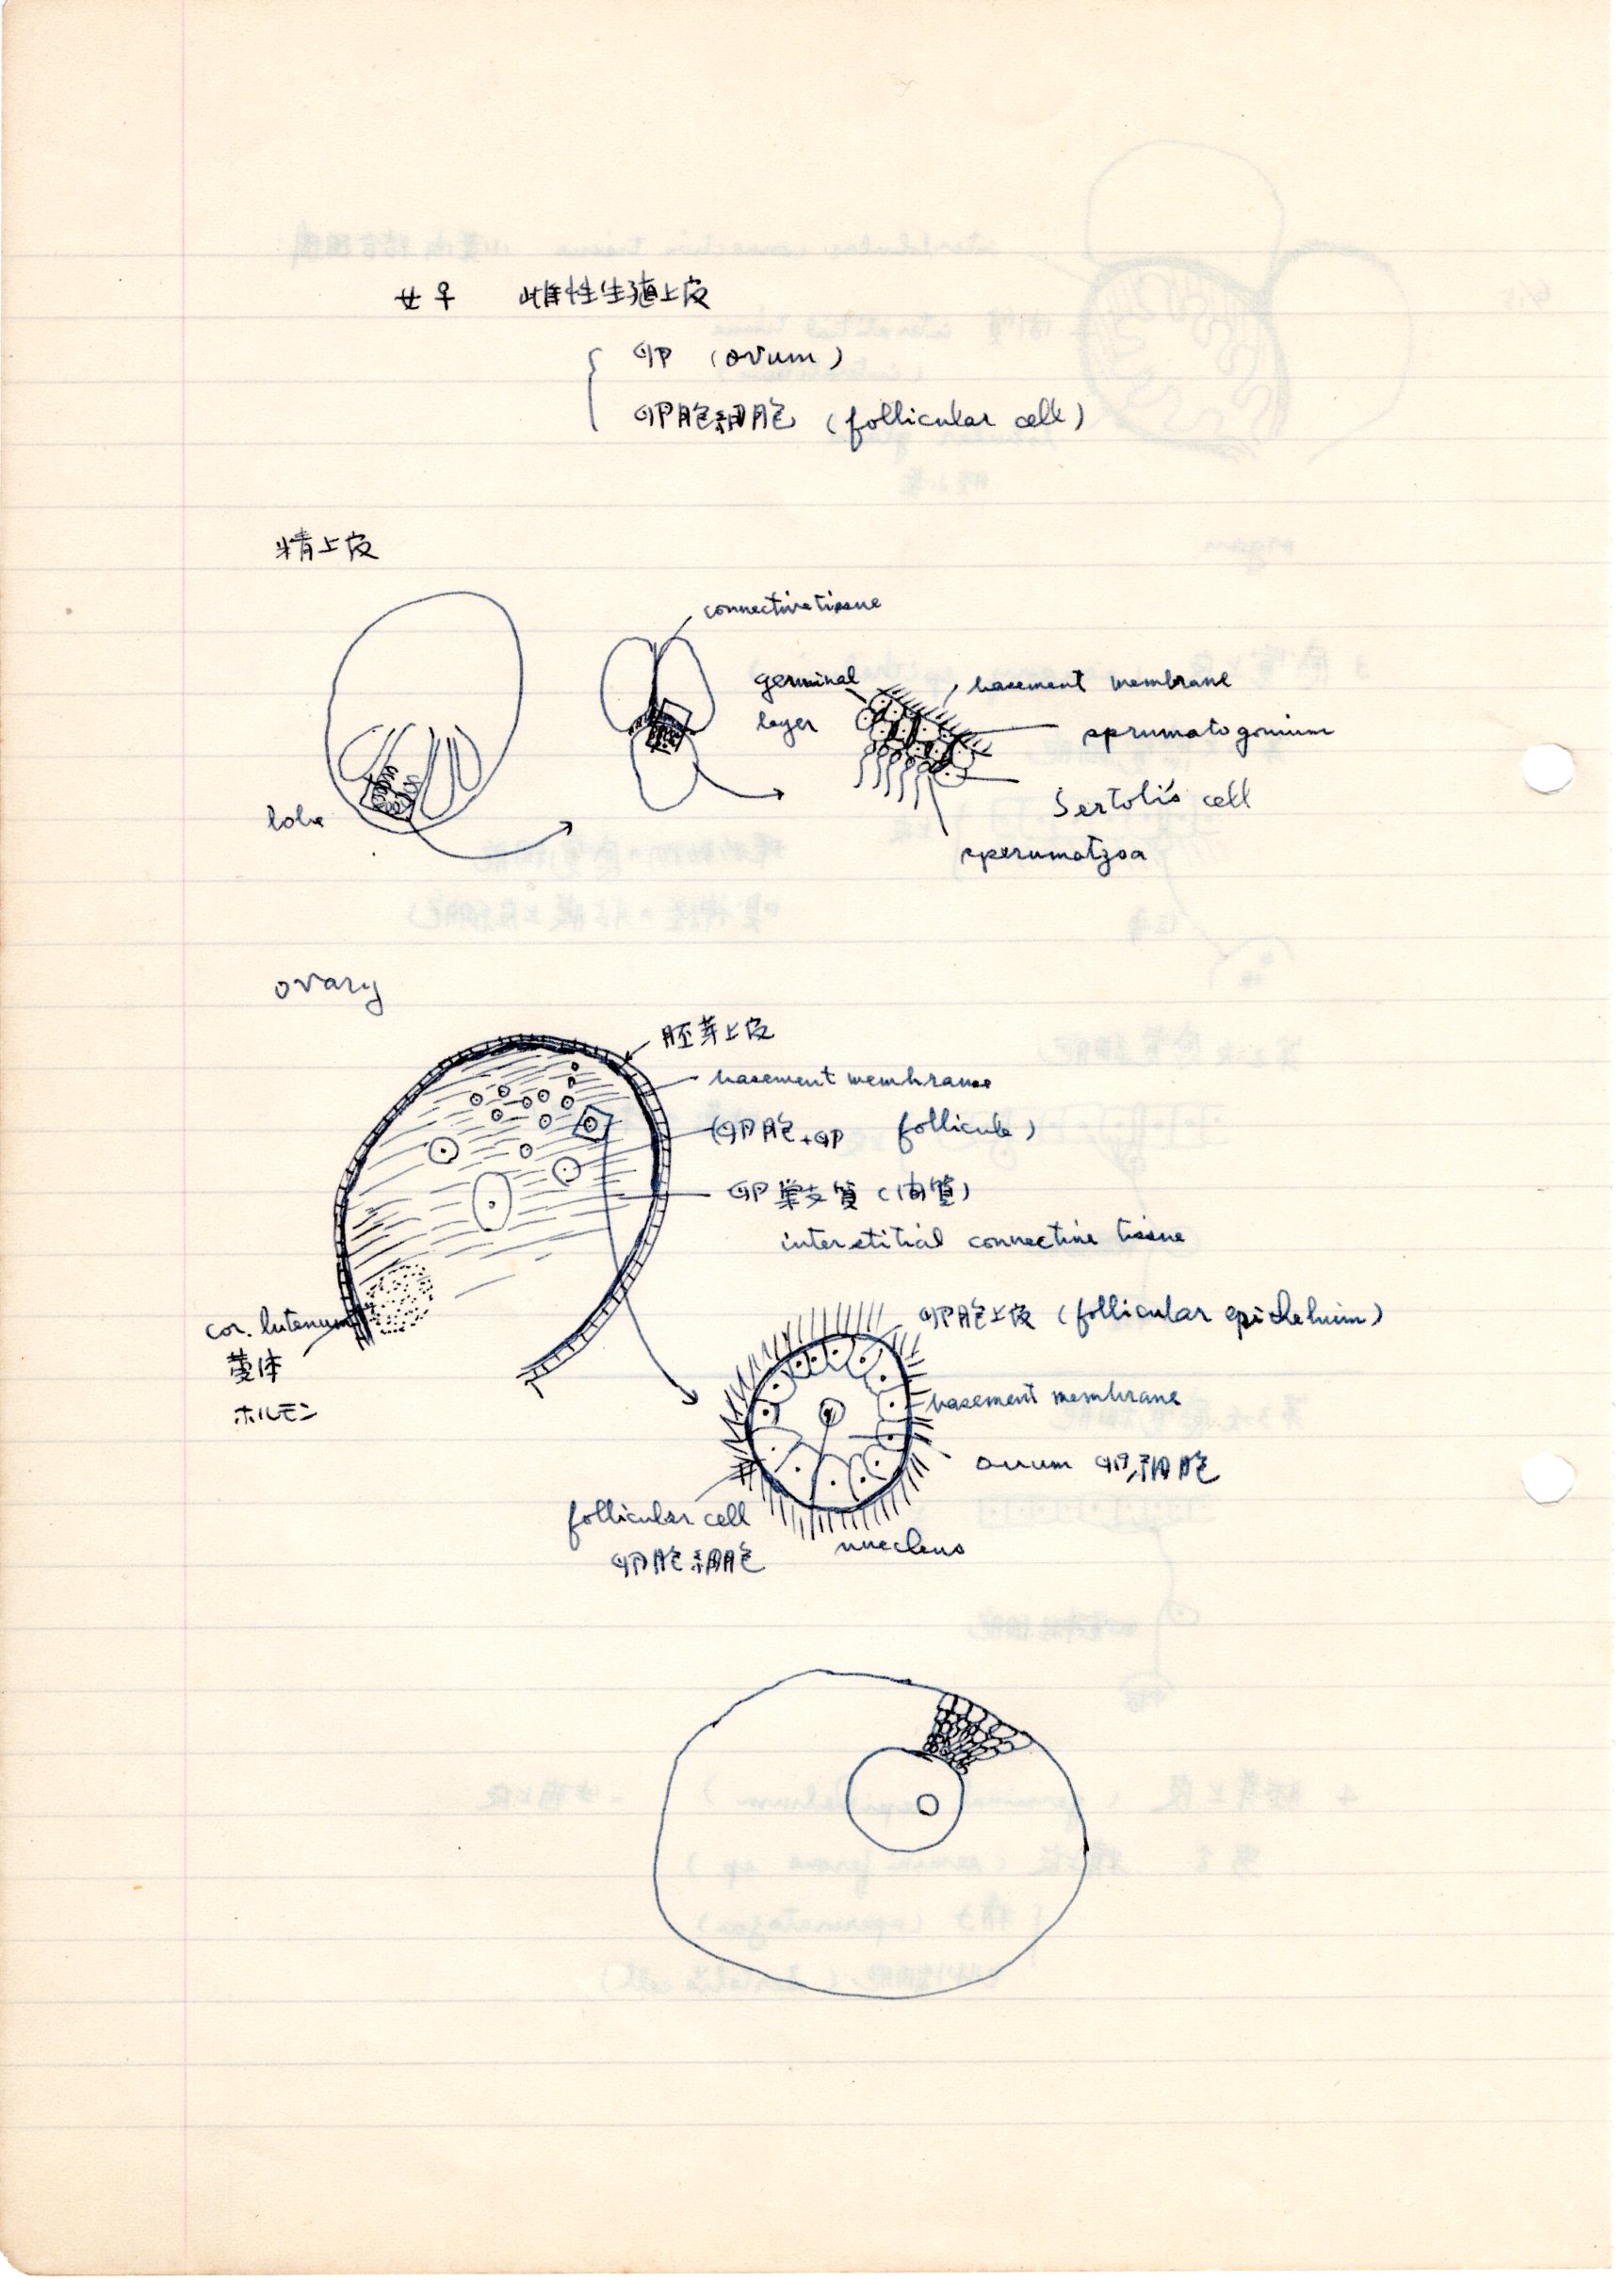 女 ♀ 雌性生殖上皮
卵 (ovum)
卵胞細胞 (follicular cell)
精上皮
connective tissue
germinal
layer
basement membrane
sprumatogonium
Sertoli's cell
sperumatzoa
lobe
ovary
胚芽上皮
basement membrane
(卵胞+卵 follicule)
卵巣支質 (間質)
interstitial connective tissue
cor. lutenum
黄体
ホルモン
卵胞上皮 (follicular epithelium)
basement membrane
ovum 卵細胞
follicular cell
卵胞細胞
nucleus